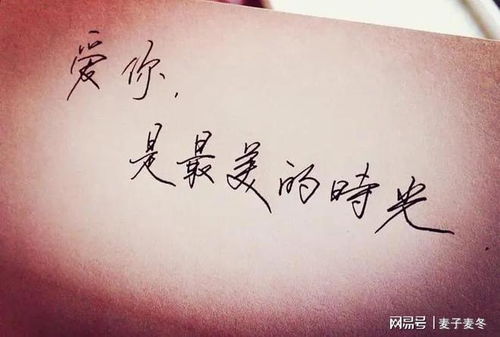 爱你,
是最美的時光
网易号 | 麦子麦冬